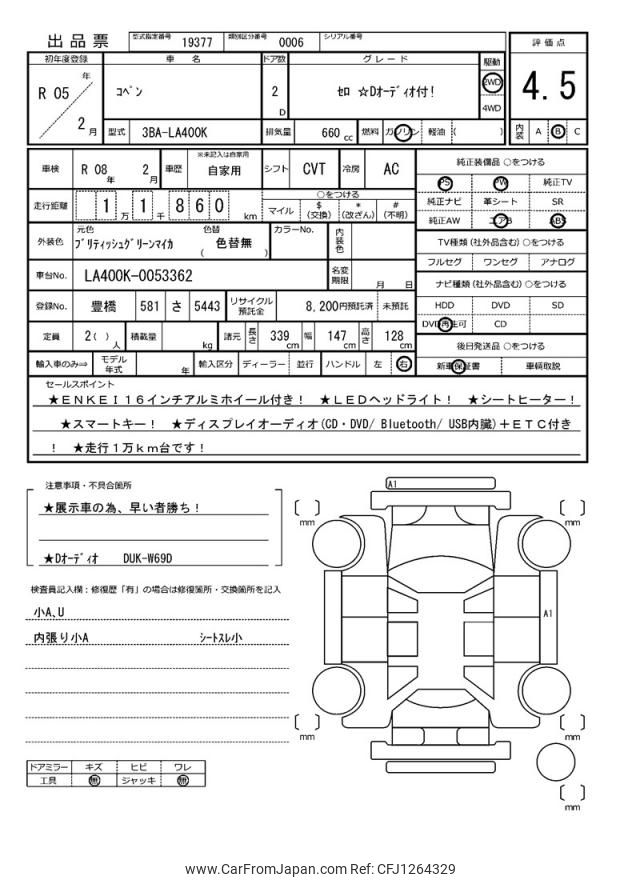 出品票 型式指定番号 19377 類別区分番号 0006 シリアル番号
評価点
4.5
内装 A B C
初年度登録 車名 ドア数 グレード 駆動
R 05 年 2 月
コペン
2 D
セロ ☆Dオーディオ付!
2WD
4WD
型式 3BA-LA400K 排気量 660 cc 燃料 ガソリン 軽油 ( )
車検 R 08 年 2 月 車歴 ※未記入は自家用 自家用 シフト CVT 冷房 AC
走行距離 1 万 1 千 8 6 0 km
○をつける
マイル $(交換) *(改ざん) #(不明)
外装色 元色 ブリティッシュグリーンマイカ 色替 ( 色替無 ) カラーNo. 内装色
車台No. LA400K-0053362 名変期限 月 日
登録No. 豊橋 581 さ 5443 リサイクル預託金 8,200円預託済 未預託
定員 2( )人 積載量 kg 諸元 長さ 339 cm 幅 147 cm 高さ 128 cm
輸入車のみ⇒ モデル年式 年 輸入区分 ディーラー 並行 ハンドル 左 右
純正装備品 ○をつける
PS PW 純正TV
純正ナビ 革シート SR
純正AW エアB ABS
TV種類(社外品含む) ○をつける
フルセグ ワンセグ アナログ
ナビ種類(社外品含む) ○をつける
HDD DVD SD
DVD再生可 CD
後日発送品 ○をつける
新車保証書 車輌取説
セールスポイント
★ENKEI16インチアルミホイール付き! ★LEDヘッドライト! ★シートヒーター!
★スマートキー! ★ディスプレイオーディオ(CD・DVD/ Bluetooth/ USB内臓)+ETC付き
! ★走行1万km台です!
注意事項・不具合箇所
★展示車の為、早い者勝ち!
★Dオーディオ DUK-W69D
検査員記入欄:修復歴「有」の場合は修復箇所・交換箇所を記入
小A、U
内張り小A シートスレ小
ドアミラー キズ ヒビ ワレ
工具 無 ジャッキ 無
A1
A1
mm
mm
mm
mm
mm
www.CarFromJapan.com Ref: CFJ1264329